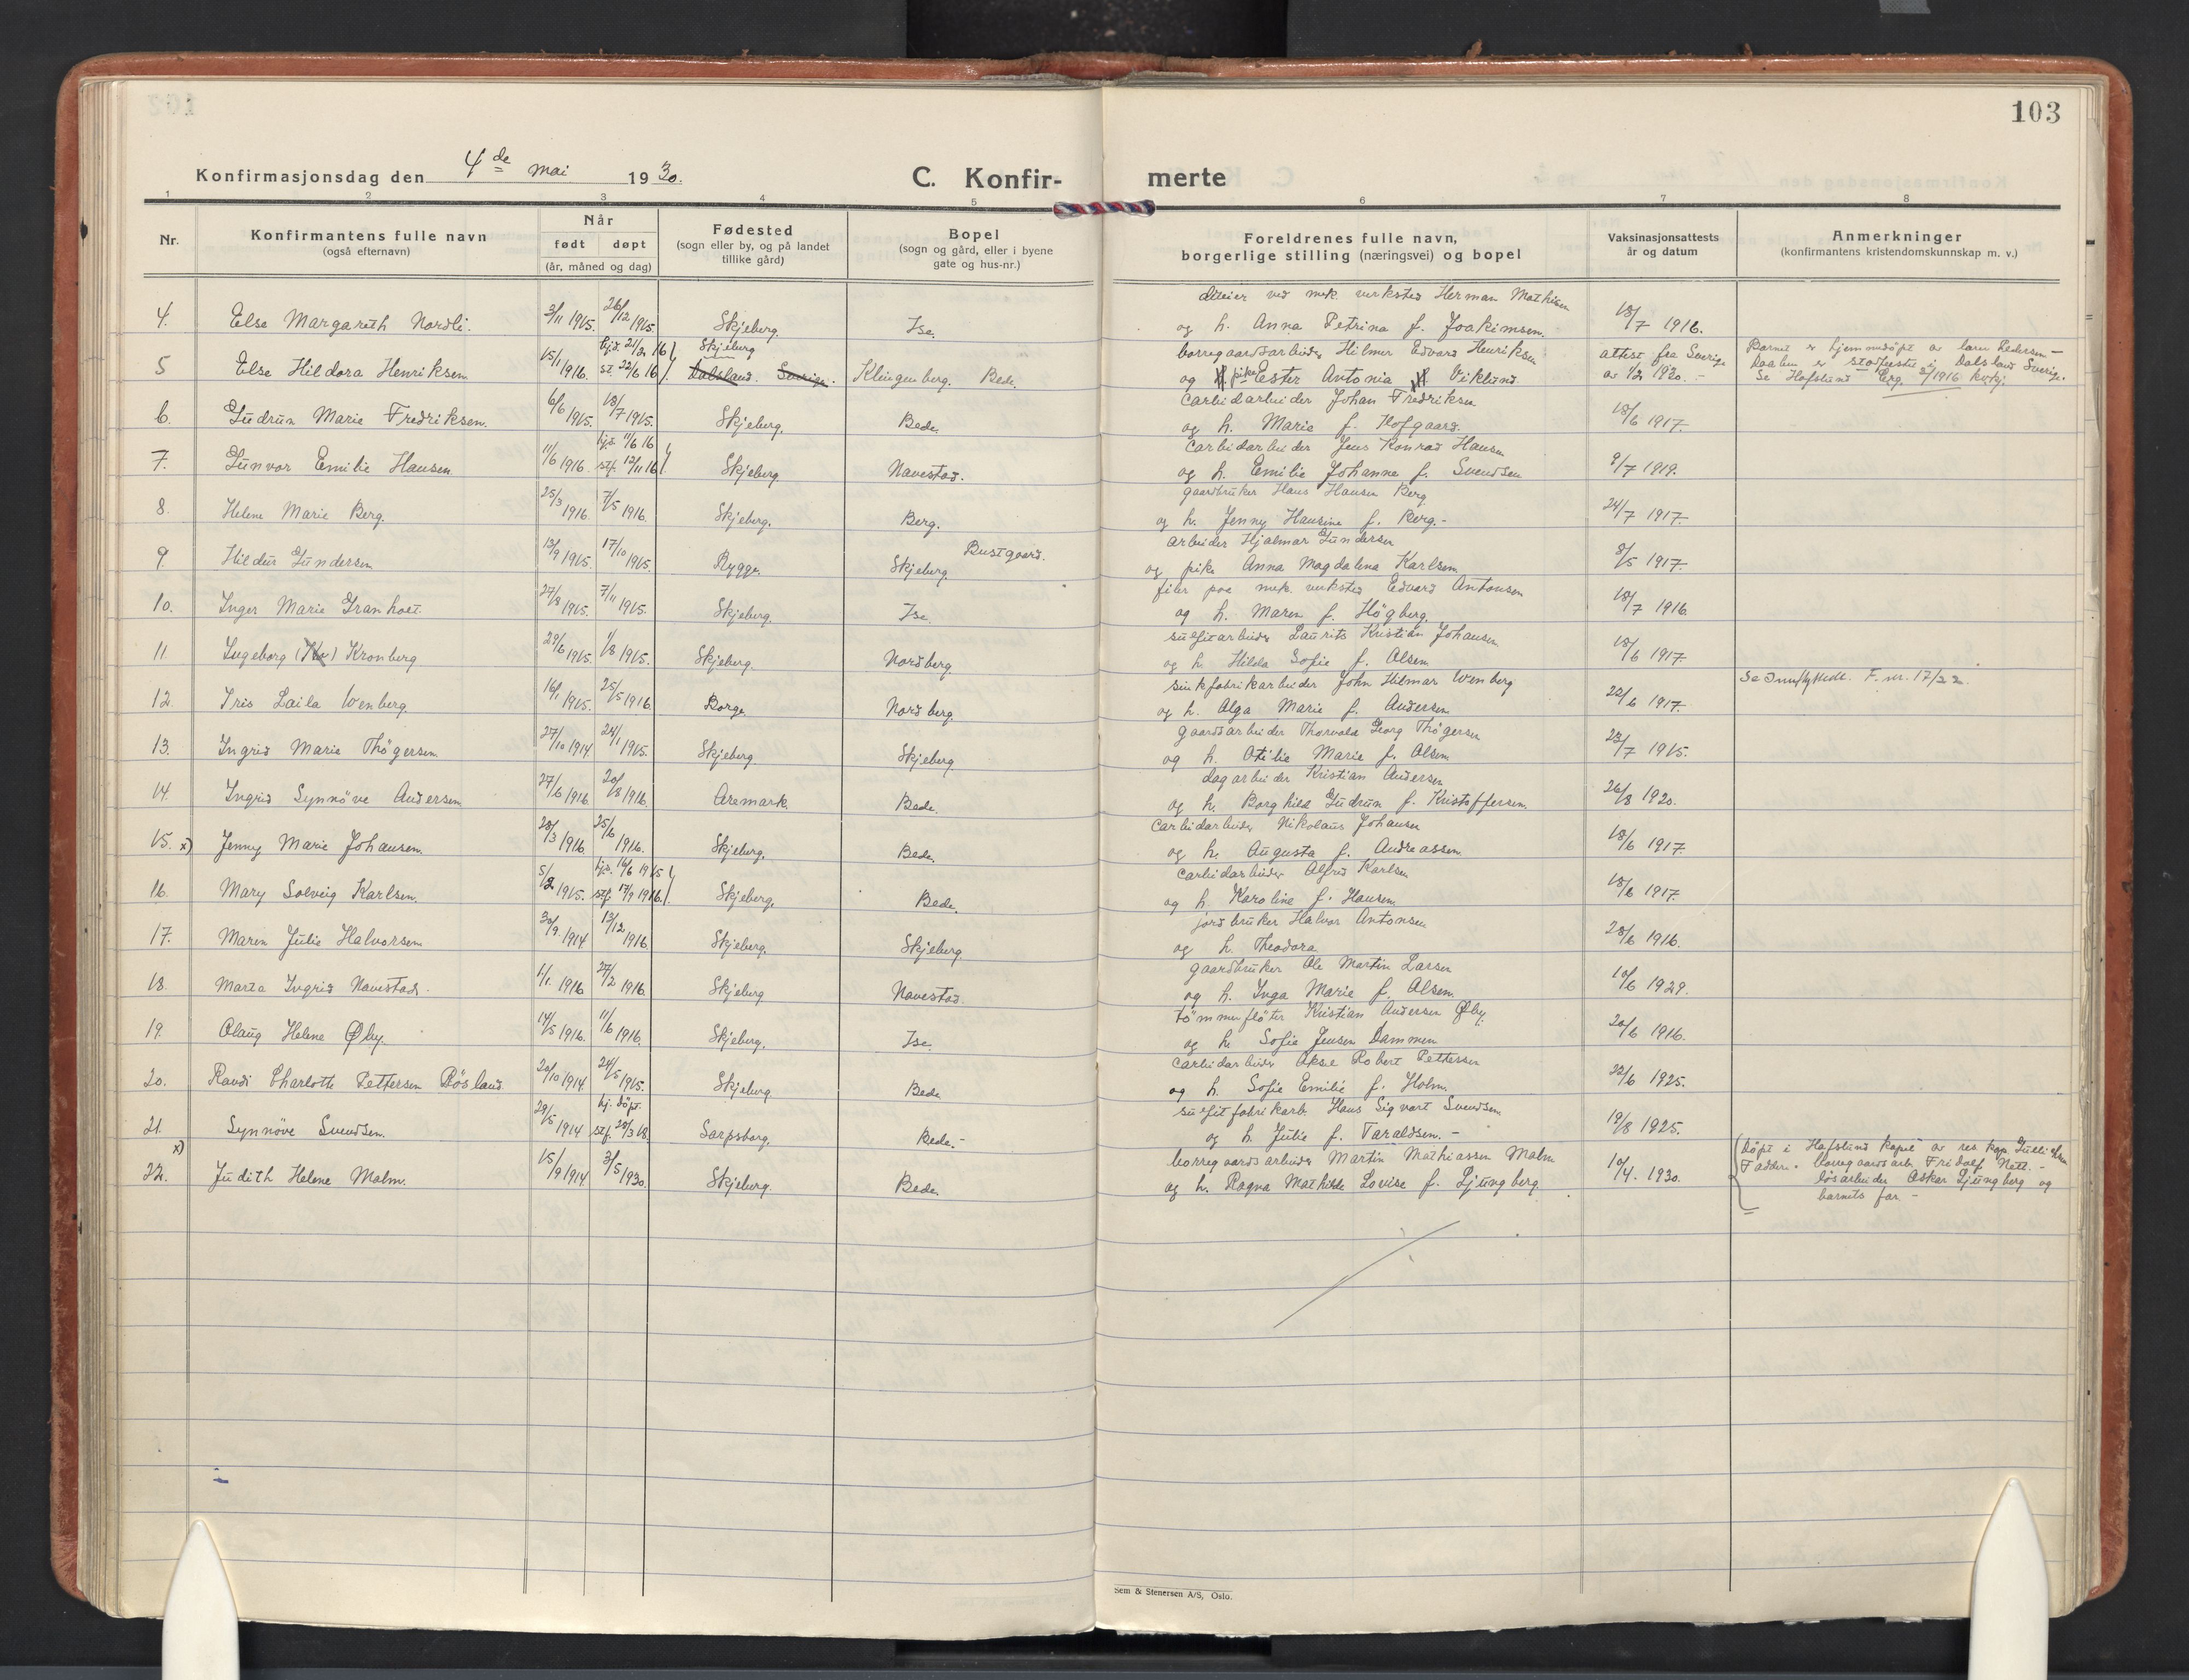 103
Konfirmasjonsdag den 4de mai 1930.
C. Konfir- merte
1 2 3 4 5 6 7 8
Nr.
Konfirmantens fulle navn
(også efternavn)
Når
født døpt
(år, måned og dag)
Fødested
(sogn eller by, og på landet
tillike gård)
Bopel
(sogn og gård, eller i byene
gate og hus-nr.)
Foreldrenes fulle navn,
borgerlige stilling (næringsvei) og bopel
Vaksinasjonsattests
år og datum
Anmerkninger
(konfirmantens kristendomskunnskap m. v.)
ved mek. verksted Herman Mathisen
4. Else Margareth Nordli. 3/11 1915. 26/12 1915. Skjeberg. Ise. og h. Anna Petrina f. Joakimsen. 18/7 1916.
hjd. 21/2 16 Skjeberg borregaardsarbeider Hilmer Edvard Henriksen attest fra Sverige Barnet er hjemmedöpt av
5 Else Hildora Henriksen 15/1 1916. st. 22/6 16 Dalsland. Sverige. Klingenberg. Bede. og pike Ester Antonia Viklund. av 1/2 1920. - Daaben er stadfestet i Dalsland Sverige.
Se Hafslund 2/1916
carbidarbeider Johan Fredriksen
6. Gudrun Marie Fredriksen. 6/6 1915. 18/7 1915. Skjeberg. Bede. og h. Marie f. Hofgaard. 18/6 1917.
hjd. 11/6 16 carbidarbeider Jens Konrad Hansen
7. Gunvor Emilie Hansen 11/6 1916. stf. 12/11 16 Skjeberg Navestad. og h. Emilie Johanne f. Svendsen 9/7 1919.
gaardbruker Hans Hansen Berg
8. Helene Marie Berg. 25/3 1916. 7/5 1916. Skjeberg. Berg. og h. Jenny Hansine f. Berg.- 24/7 1917.
arbeider Hjalmar Gundersen
9. Hildur Gundersen 13/9 1915. 17/10 1915. Rygge. Skjeberg Bustgaard. og pike Anna Magdalena Karlsen. 8/5 1917.
filer paa mek. verksted Edvard Antonsen
10. Inger Marie Granholt 27/8 1915. 7/11 1915. Skjeberg. Ise. og h. Maren f. Högberg. 18/7 1916.
sulfitarbeider Laurits Kristian Johansen
11 Ingeborg Kronberg 29/6 1915. 1/8 1915. Skjeberg. Nordberg. og h. Hilda Sofie f. Olsen 18/6 1917.
sinkfabrikarbeider John Hilmar Wenberg Se Innflyttede. F. nr. 17/22.
12. Iris Laila Wenberg 16/1 1915. 25/5 1916. Borge. Nordberg og h. Olga Marie f. Andersen 22/6 1917.
gaardsarbeider Thorvald Georg Thögersen
13. Ingrid Marie Thögersen 27/10 1914 24/1 1915. Skjeberg Skjeberg og h. Otilie Marie f. Olsen 23/7 1915.
dagarbeider Kristian Andersen
14. Ingrid Synnöve Andersen 27/6 1916. 20/8 1916. Aremark. Bede. og h. Borghild Gudrun f. Kristoffersen. 26/8 1920.
carbidarbeider Nikolaus Johansen
15. x) Jenny Marie Johansen. 28/3 1916. 25/6 1916. Skjeberg. Bede. og h. Augusta f. Andreassen 18/6 1917.
hjd. 16/6 1915 carbidarbeider Alfred Karlsen
16. Mary Solveig Karlsen. 5/2 1915. stf. 17/9 1916. Skjeberg. Bede. og h. Karoline f. Hansen. 18/6 1917.
jordbruker Halvor Antonsen
17. Maren Julie Halvorsen 30/9 1914 13/12 1916. Skjeberg. Skjeberg og h. Theodora 28/6 1916.
gaardbruker Ole Martin Larsen
18. Marta Ingrid Navestad. 11/1. 1916 27/2 1916. Skjeberg Navestad. og h. Inga Marie f. Olsen. 10/6 1929.
tömmerflöter Kristian Andersen Øby.
19. Olaug Helene Øby. 14/5 1916. 11/6 1916. Skjeberg. Ise. og h. Sofie Jensen Dammen 20/6 1916.
carbidarbeider Aksel Robert Pettersen
20. Randi Charlotte Pettersen Rösland 20/10 1914 24/5 1915. Skjeberg Bede og h. Sofie Emilie f. Holm. 22/6 1925.
hj. döpt. sulfitfabrikarb. Hans Sigvart Svendsen.
21. Synnöve Svendsen. 29/5 1914 stf. 28/3 18. Sarpsborg. Bede.- og h. Julie f. Taraldsen. - 19/8 1925.
x) borregaardsarbeider Martin Mathiassen Malm Döpt i Hafslund kapel av res. kap.
22. Judith Helene Malm. 15/9 1914 3/5 1930. Skjeberg. Bede. og h. Ragna Mathilde Lovise f. Ljungberg. 10/4. 1930. Faddere: borregaardsarb. Fridolf -
lösarbeider Oskar Ljungberg og
barnets far. -
Sem & Stenersen A/S, Oslo.